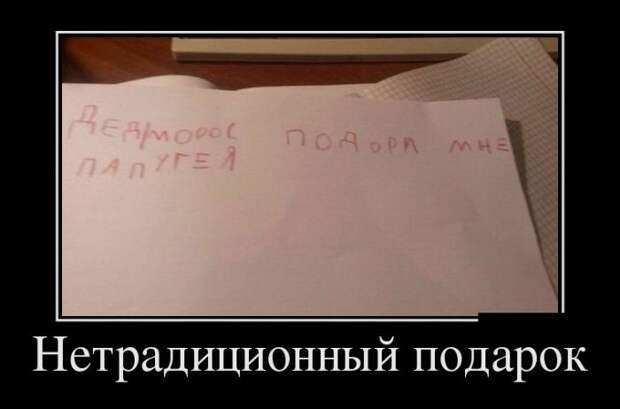 ДЕДМОРОС ПОДОРИ МНЕ
ПАПУГЕЯ
Нетрадиционный подарок